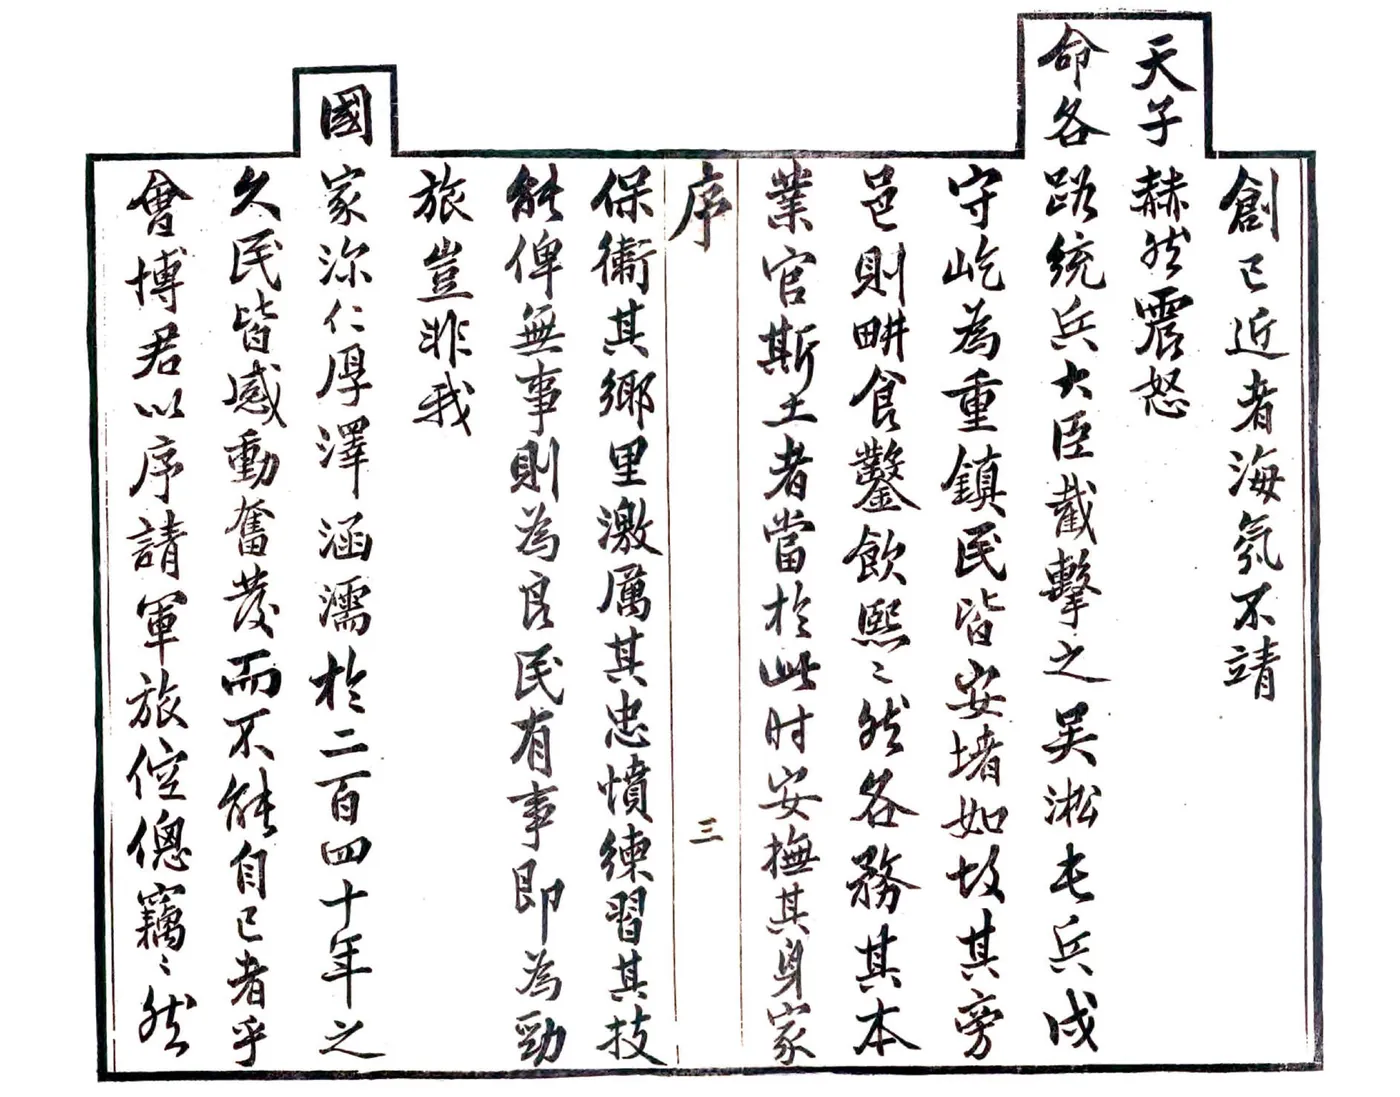 創已近者海氛不靖
天子赫然震怒
命各路統兵大臣截擊之吴淞屯兵戍
守屹為重鎮民皆安堵如故其旁
邑則畊食鑿飲熙〻然各務其本
業官斯土者當於此时安撫其身家
序
三
保衞其鄉里激厲其忠憤練習其技
能俾無事則為良民有事即為勁
旅豈非我
國家深仁厚澤涵濡於二百四十年之
久民皆感動奮發而不能自已者乎
會博君以序請軍旅倥傯竊〻然